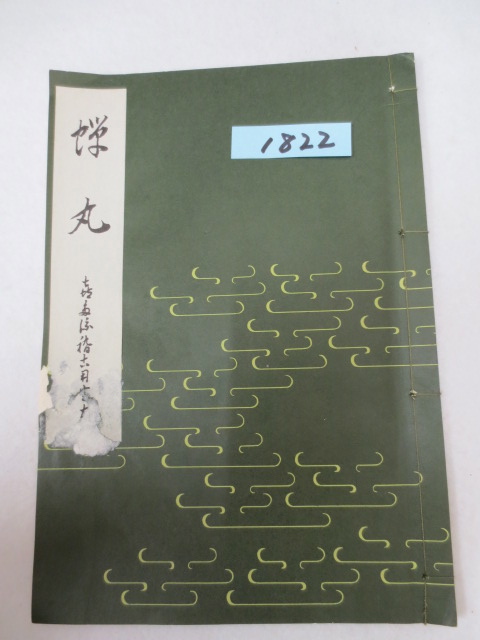 蝉丸
喜多流稽古用
1822